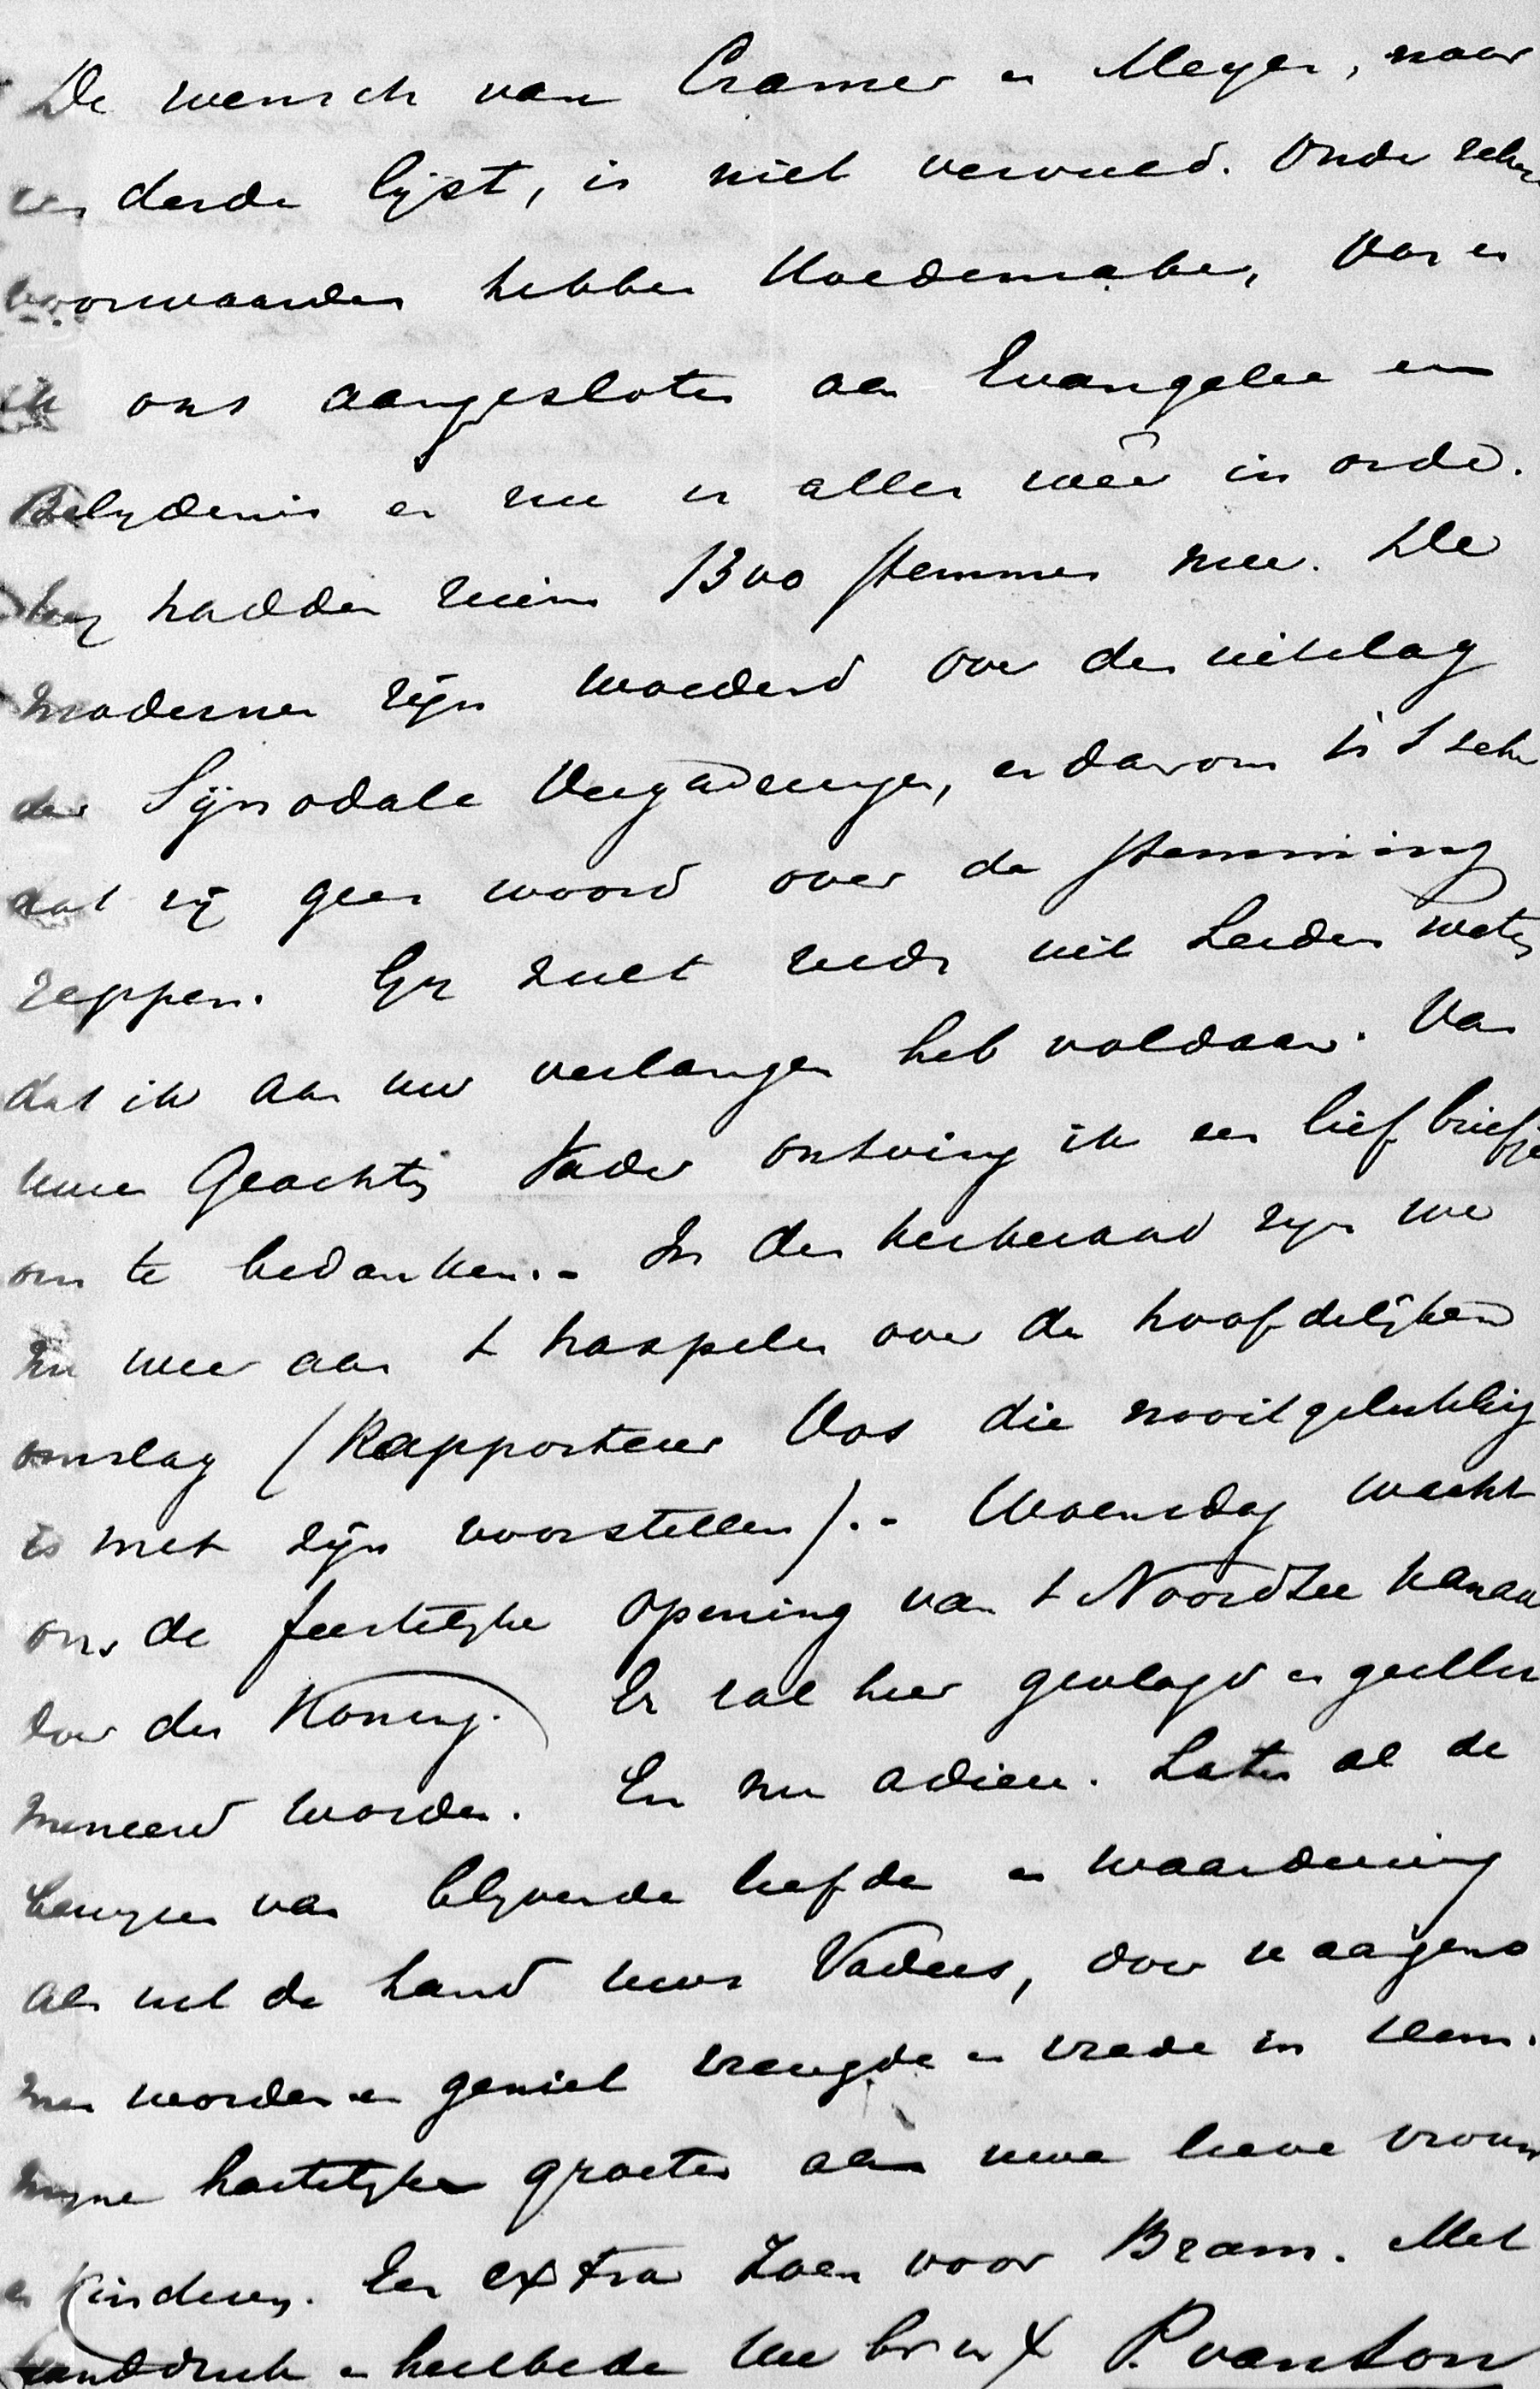 De wensch van Cramer en Meyer, naar
een derde lijst, is niet vervuld. Onder zekere
voorwaarden hebben Hoedemaker, Vos en
ik ons aangesloten aan Evangelie en
Belydenis en nu is alles weêr in orde.
Wy hadden ruim 1300 stemmen mee. De
modernen zijn woedend over den uitslag
der Synodale Vergaderingen, en daarom is 't
dat zij geen woord over de stemming
reppen. Gy zult reeds uit Leiden weten
dat ik aan uw verlangen heb voldaan. Van
uwen Geachten Vader ontving ik een lief briefje
om te bedanken. - In den kerkeraad zyn we
nu weer aan 't haspelen over de hoofdelijken
omslag (Rapporteur Vos die nooit gelukkig
is met zijn voorstellen). - Woensdag wacht
ons de feestelyke opening van 't Noordzee kanaal
door den Koning. Er zal hier gevlagd en geillu
mineerd worden. En nu adieu. Laten al de
bewyzen van blyvende liefde en waardeering
als uit de hand uws Vaders, door u aangeno
men worden en geniet vreugde en vrede in Hem.
Myne hartelyke groeten aan uwe lieve vrouw
en Kinderen. Een extra zoen voor Bram. Met
handdruk en heilbede Uw br in X P. van Son